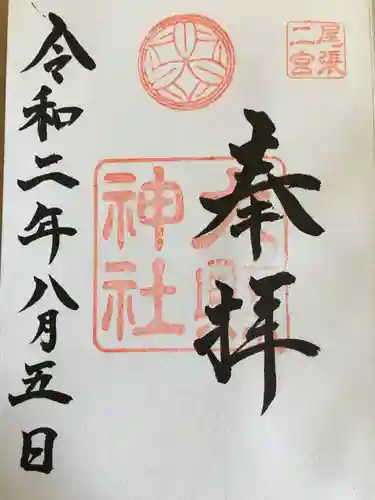 尾張
二宮
奉拝
大縣
神社
令和二年八月五日